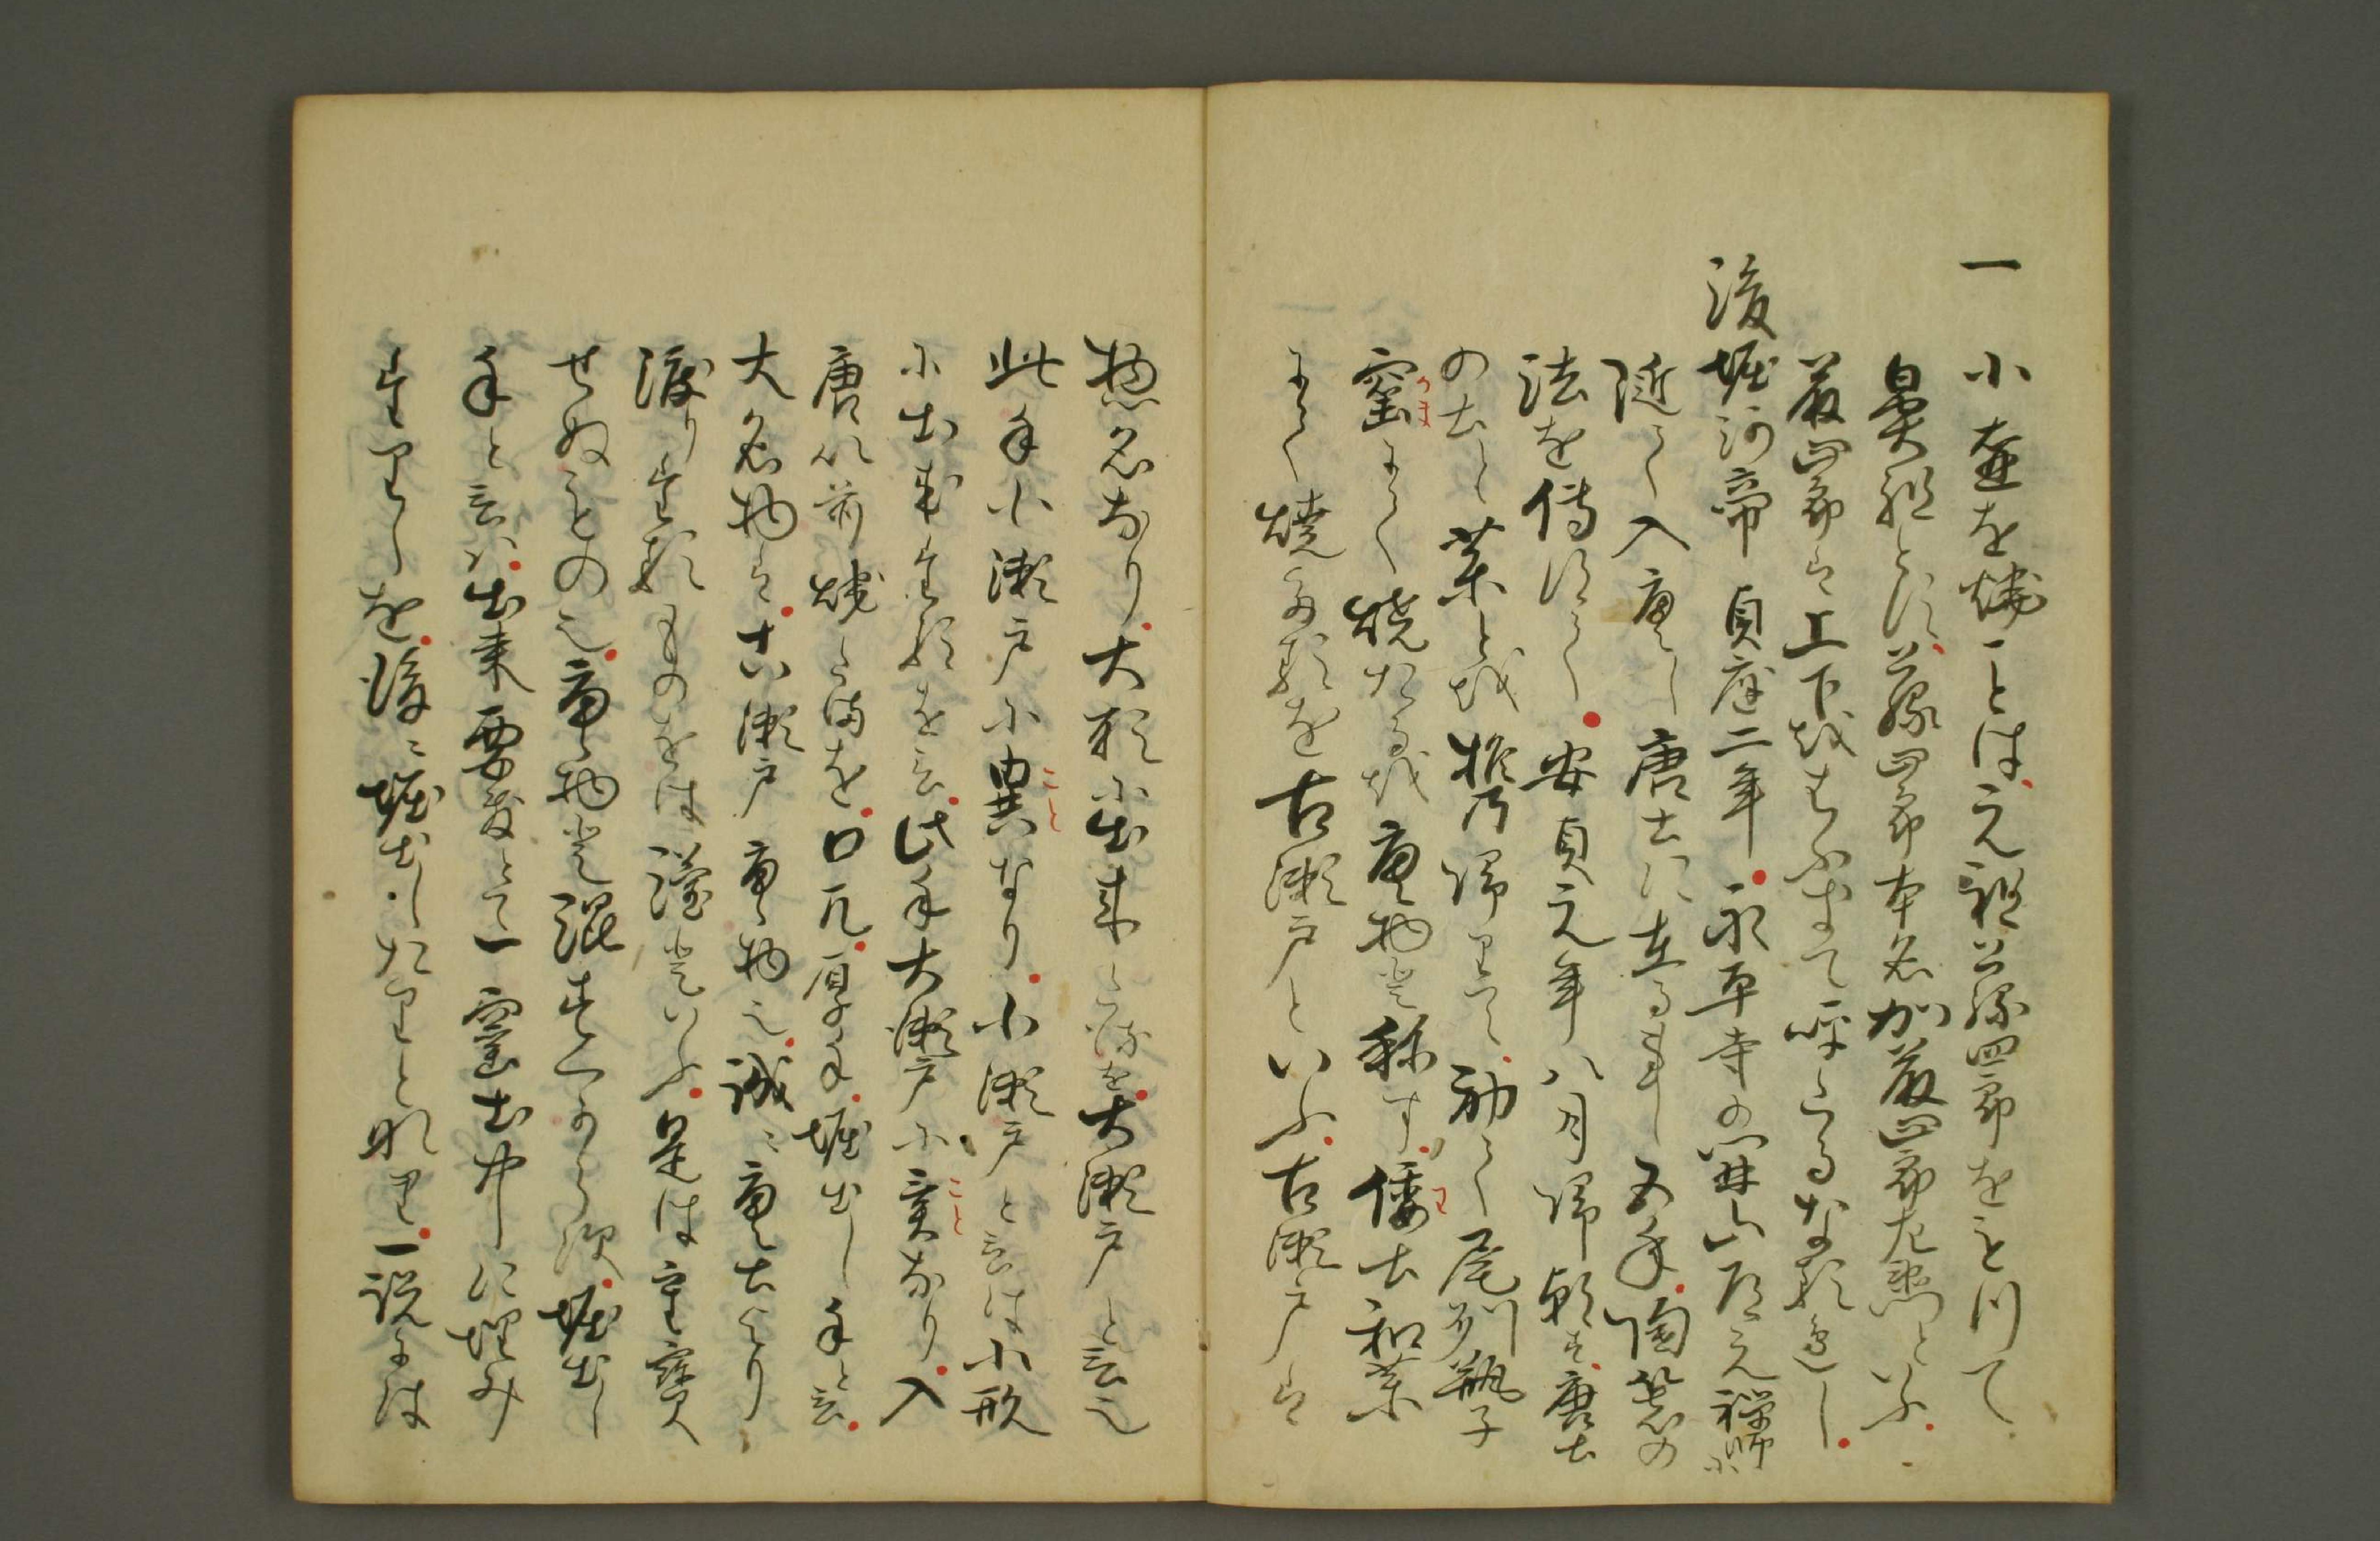 一 小壺を焼ことは元祖藤四郎をもつて
鼻祖とす藤四郎本名加藤四郎左衛門といふ
藤四郎は上下をはふきて呼たるなるへし
後堀河帝貞應二年永平寺の開山道元禅師に
随て入唐し唐土に在る事五年陶器の
法を傳得て安貞元年八月帰朝す唐土
の土と薬と携帰りて初て尾州瓶子
窯にて焼たるを唐物と称す倭土和薬
にて焼たるを古瀬戸といふ古瀬戸は
惣名なり大形に出来たるを大瀬戸と云也
此手小瀬戸に異なり小瀬戸と云は小形
に出来たるを云此手大瀬戸に異なり入
唐以前焼たるを口兀厚手堀出し手と云
大名物は古瀬戸唐物也誠に唐土より
渡りたるものをは漢といふ是は重寳
せぬもの也唐物と混すへからす堀出し
手と云は出来悪敷とて一窯土中に埋み
たりしを後に堀出したりとなり一説には